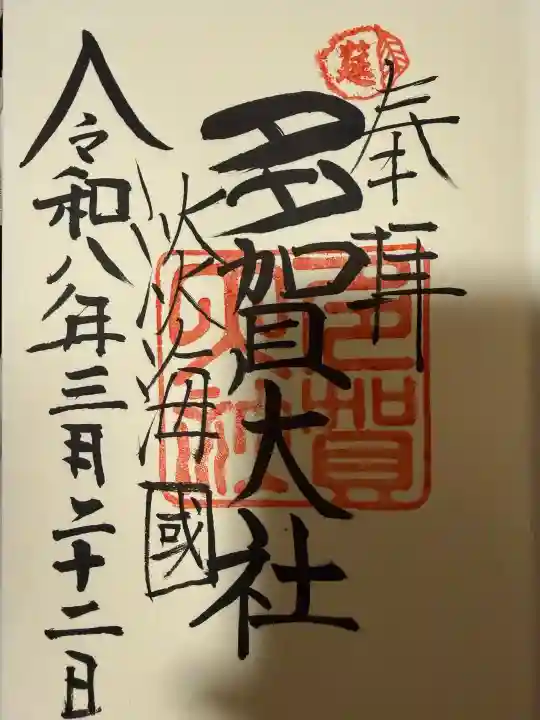 奉拝
多賀大社
淡海國
令和八年三月二十二日
多賀大社